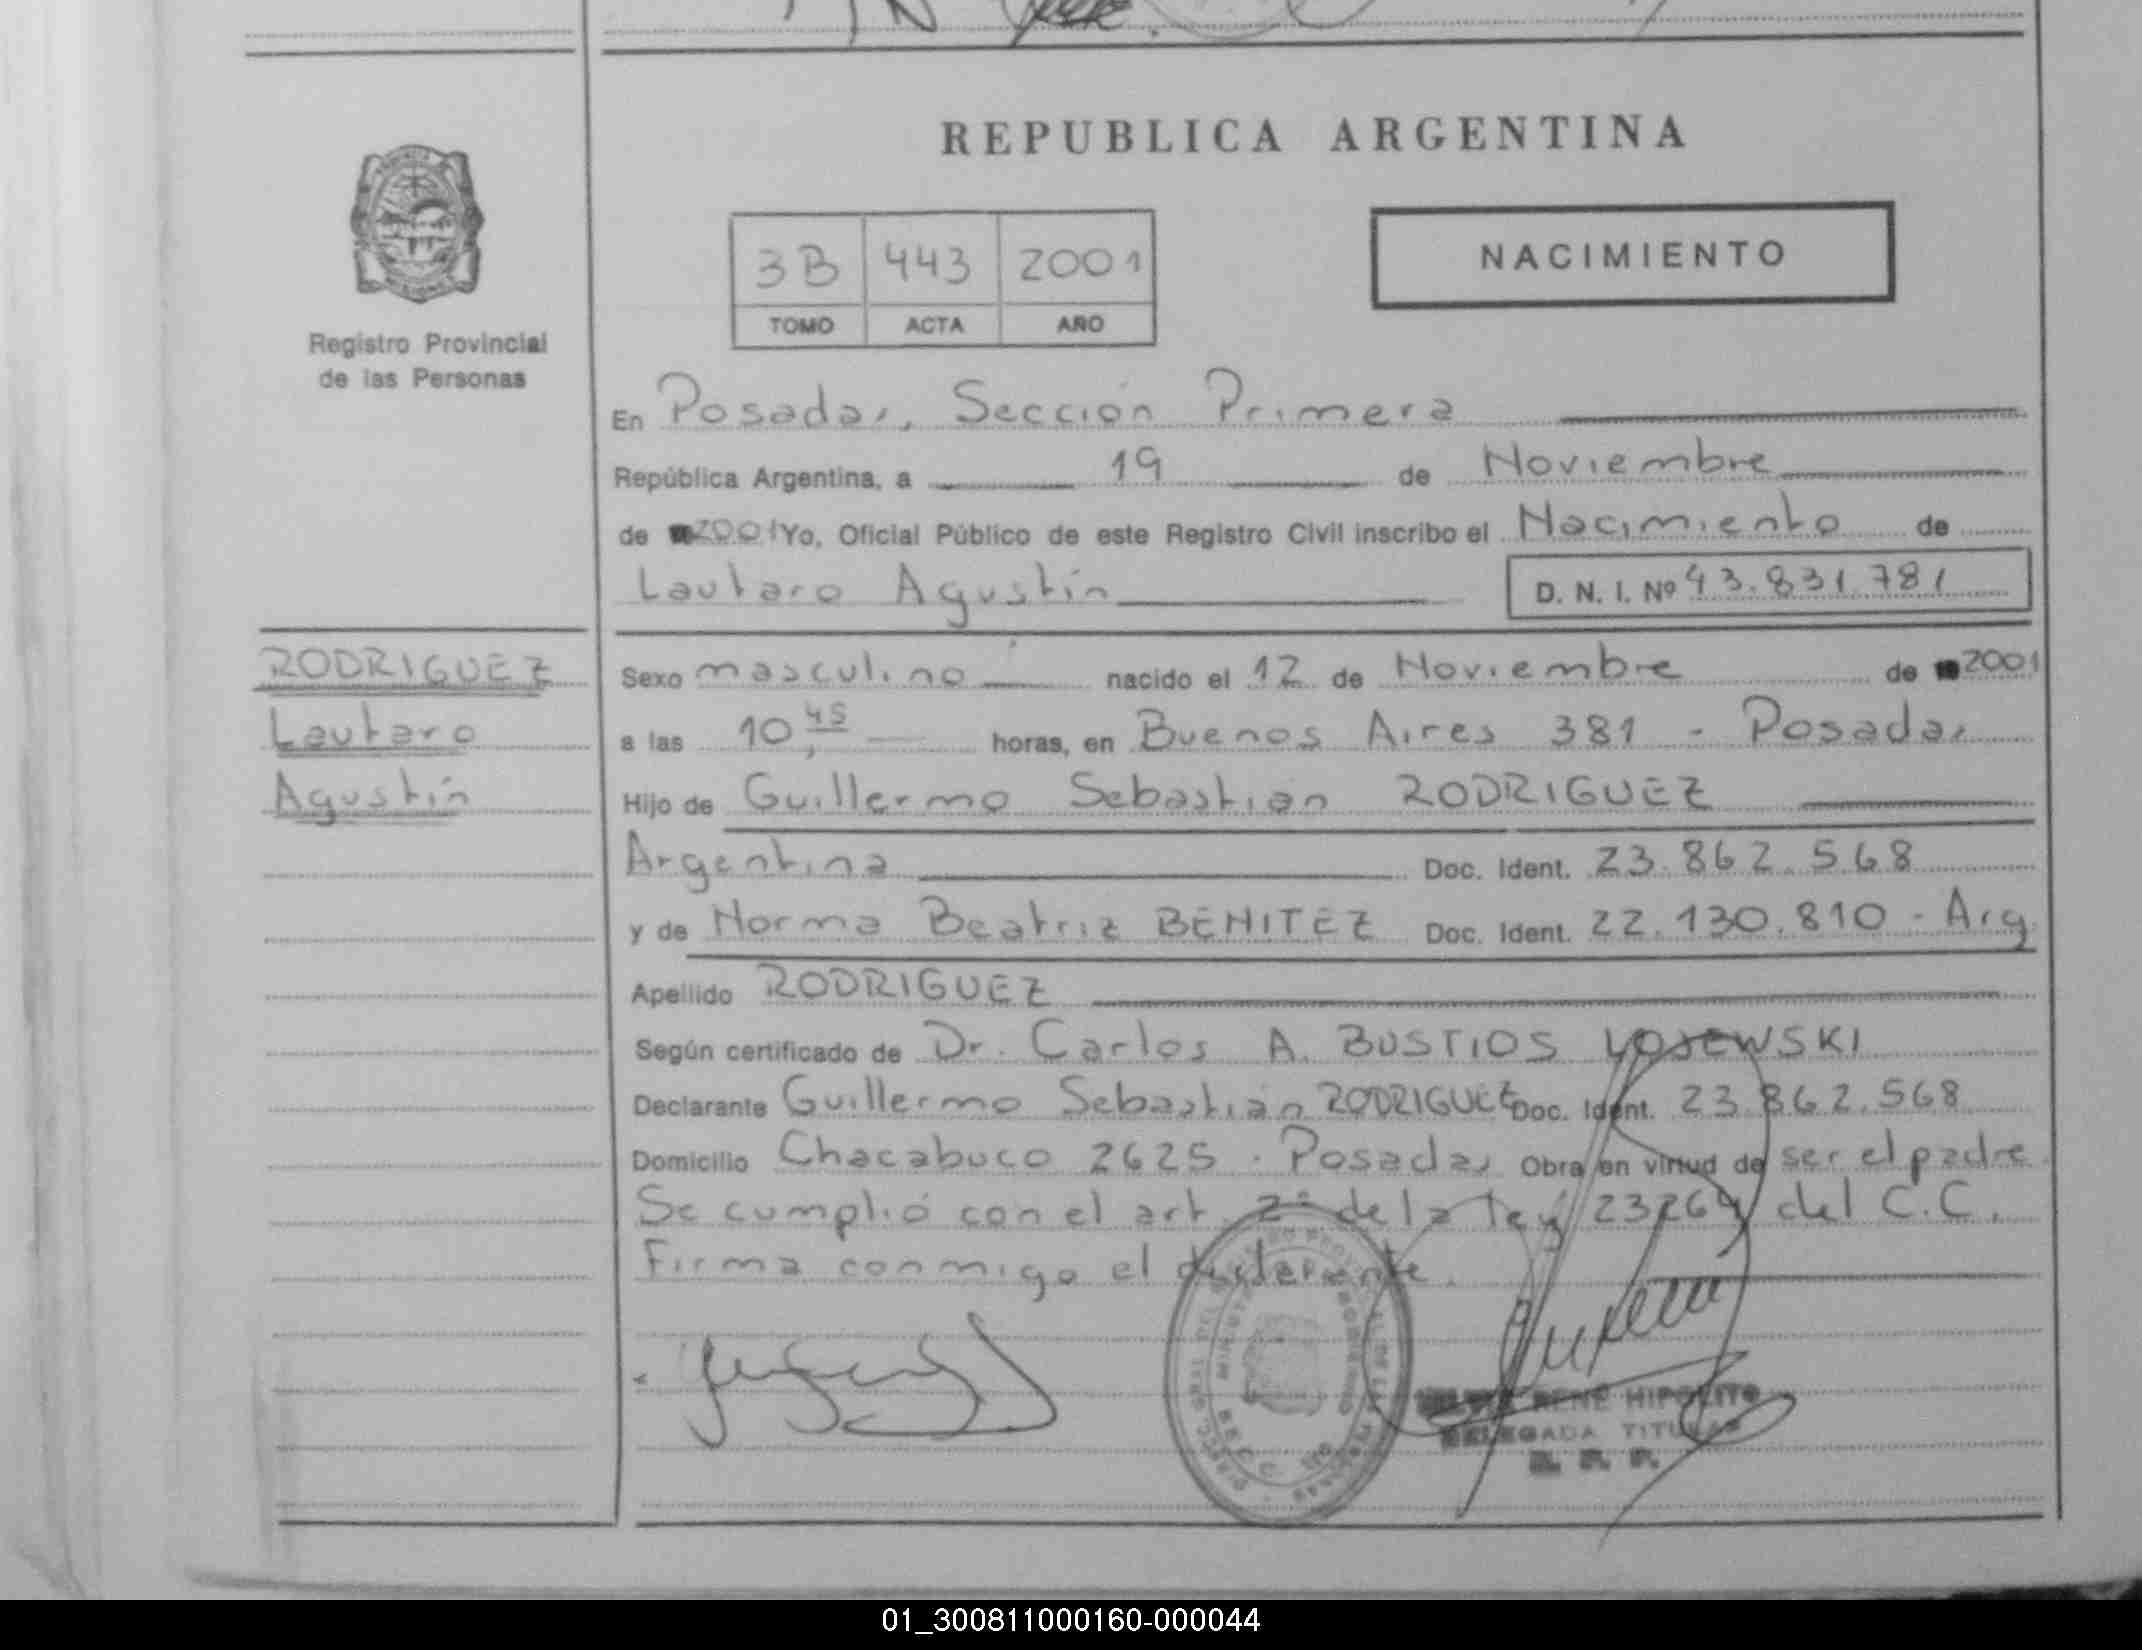 REPUBLICA ARGENTINA
3B 443 2001
TOMO ACTA AÑO
NACIMIENTO
Registro Provincial
de las Personas
En Posadas, Sección Primera
República Argentina, a 19 de Noviembre
de 2001 Yo, Oficial Público de este Registro Civil inscribo el Nacimiento de
Lautaro Agustín D. N. I. Nº 43.831.781
RODRIGUEZ
Lautaro
Agustín
Sexo masculino nacido el 12 de Noviembre de 2001
a las 10,45 horas, en Buenos Aires 381 - Posadas
Hijo de Guillermo Sebastian RODRIGUEZ
Argentina Doc. Ident. 23.862.568
y de Norma Beatriz BENITEZ Doc. Ident. 22.130.810 - Arg.
Apellido RODRIGUEZ
Según certificado de Dr. Carlos A. BUSTIOS
Declarante Guillermo Sebastián RODRIGUEZ Doc. Ident. 23.862.568
Domicilio Chacabuco 2625 - Posadas Obra en virtud de ser el padre.
Se cumplió con el art. 2º de la ley 23264 del C.C.
Firma conmigo el declarante.
RENE HIPOLITO
DELEGADA TITULAR
R. P. P.
01_300811000160-000044